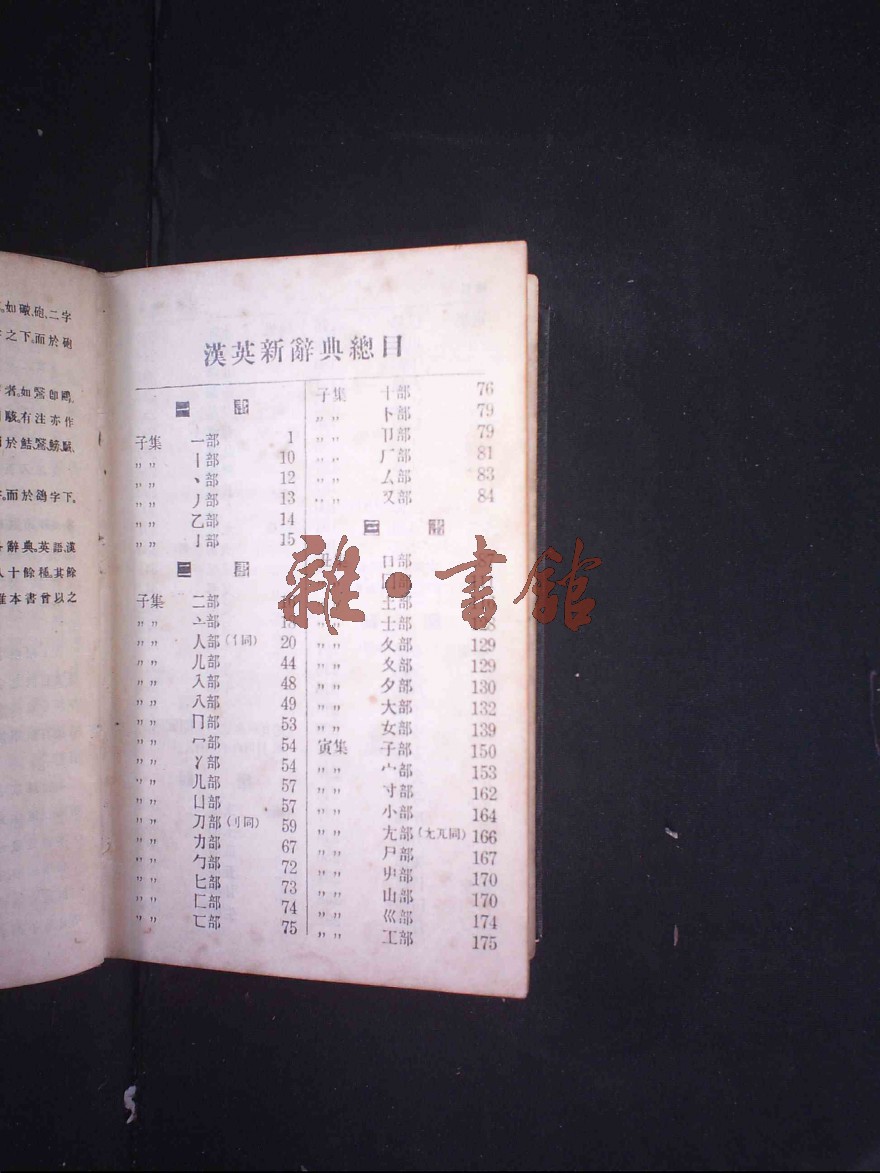 漢英新辭典總目
一 畫
子集 一部 1
〃〃 丨部 10
〃〃 丶部 12
〃〃 丿部 13
〃〃 乙部 14
〃〃 亅部 15
二 畫
子集 二部
〃〃 亠部
〃〃 人部(亻同) 20
〃〃 儿部 44
〃〃 入部 48
〃〃 八部 49
〃〃 冂部 53
〃〃 冖部 54
〃〃 冫部 54
〃〃 几部 57
〃〃 凵部 57
〃〃 刀部(刂同) 59
〃〃 力部 67
〃〃 勹部 72
〃〃 匕部 73
〃〃 匚部 74
〃〃 匸部 75
子集 十部 76
〃〃 卜部 79
〃〃 卩部 79
〃〃 厂部 81
〃〃 厶部 83
〃〃 又部 84
三 畫
口部
土部
〃〃 士部
〃〃 夂部 129
〃〃 夊部 129
〃〃 夕部 130
〃〃 大部 132
〃〃 女部 139
寅集 子部 150
〃〃 宀部 153
〃〃 寸部 162
〃〃 小部 164
〃〃 尢部(尤兀同) 166
〃〃 尸部 167
〃〃 屮部 170
〃〃 山部 170
〃〃 巛部 174
〃〃 工部 175
雜·書館
如礮,砲,二字
之下。而於砲
者。如鷖卽鷗,
駭。有注亦作
而於鴿字下。
辭典,英語,漢
八十餘種。其餘
本書曾以之